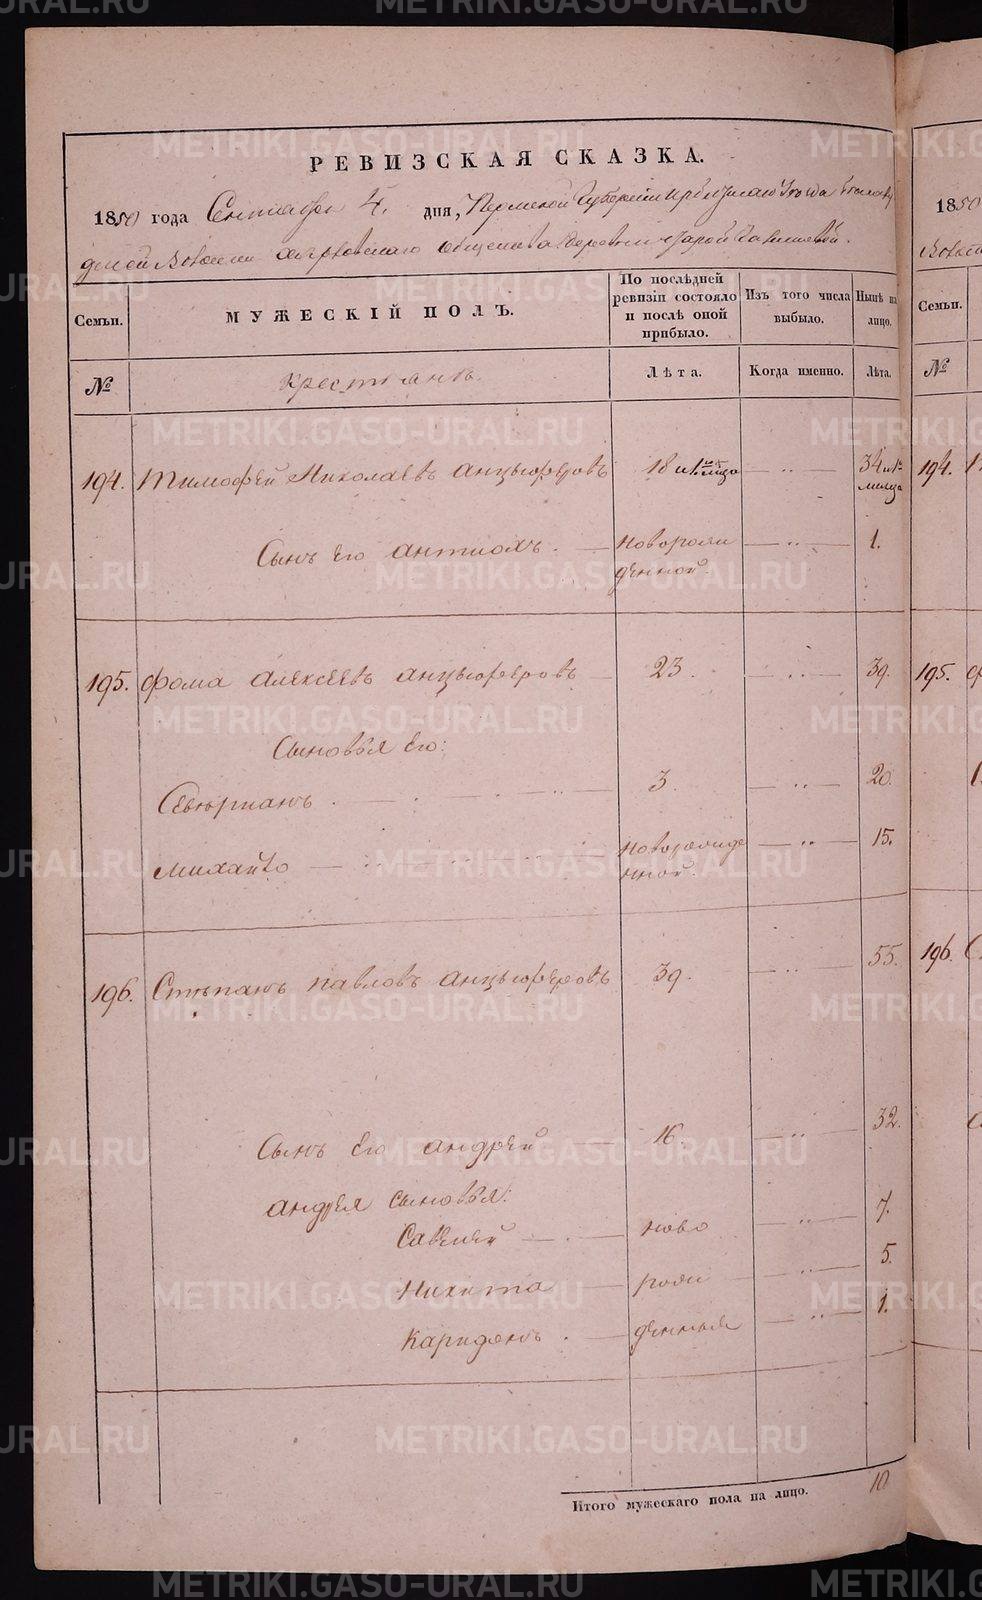 РЕВИЗСКАЯ СКАЗКА.
1850 года Сентября 4. дня, Пермской Губернии Ирбитскаго
деревни Старой
Семьи.
МУЖЕСКІЙ ПОЛЪ.
По послѣдней ревизіи состояло и послѣ оной прибыло.
Изъ того числа выбыло.
Нынѣ на лицо.
№
крестьянъ.
Лѣта.
Когда именно.
Лѣта.
194. Тимофей Николаевъ Анцыферовъ 18 — „ — 34
Сынъ его Антиохъ. — новорожденной. — „ — 1.
195. Фома Алексеевъ Анцыферовъ — 23. — „ — 39.
Сыновья его:
Севериянъ. — 3. — „ — 20.
Михайло — новорожденной. — „ — 15.
196. Степанъ Павловъ Анцыферовъ 39. — „ — 55.
Сынъ его Андрей — 16. — „ — 32.
Андрея сыновья:
Савелей — ново — „ — 7.
Никита — рож — „ — 5.
— денныя — „ — 1.
Итого мужескаго пола на лицо. 10.
1850
Семьи.
№
194.
195.
196.
METRIKI.GASO-URAL.RU